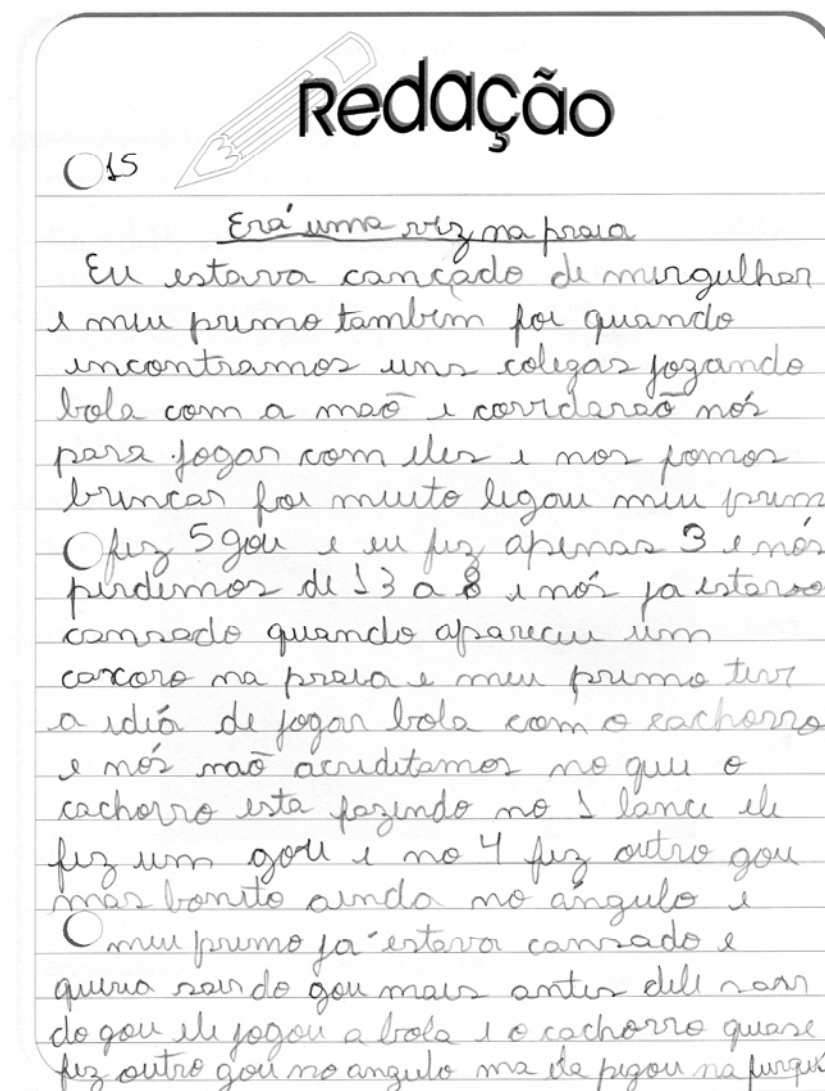 Redação
15
Erá uma vez na praia
Eu estava cançado de mergulhar
e meu primo também foi quando
encontramos uns colegas jogando
bola com a maõ e convidaraõ nós
para jogar com eles e nos fomos
brincar foi muito legau meu prim
fez 5 gou e eu fez apenas 3 e nós
perdemos de 13 a 8 e nós ja estavo
cansado quando apareceu um
caxoro na praia e meu primo teve
a idéia de jogar bola com o cachorro
e nós naõ acreditamos no que o
cachorro esta fazendo no 1 lance ele
fez um gou e no 4 fez outro gou
mas bonito ainda no ângulo e
meu primo ja estava cansado e
queria sair do gou mais antes dele sair
do gou ele jogou a bola e o cachorro quase
fez outro gou no angulo ma ele pegou na